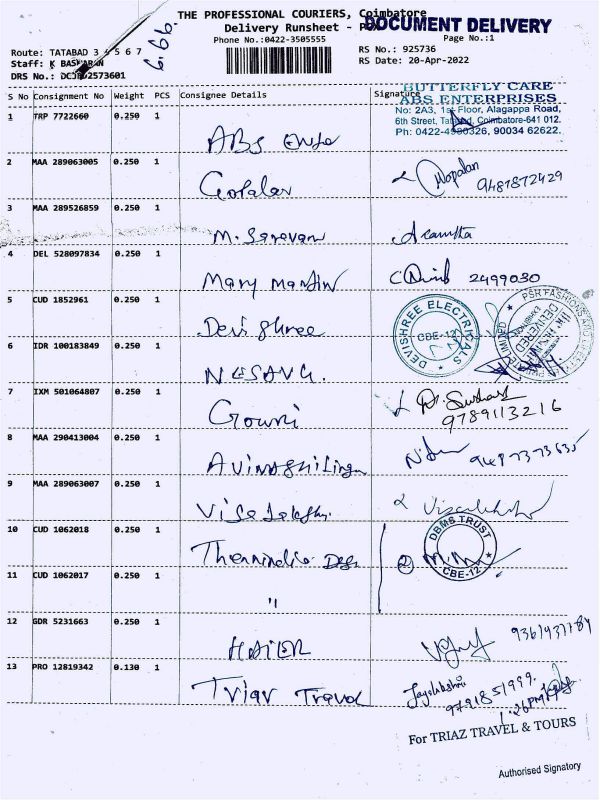 THE PROFESSIONAL COURIERS, Coimbatore
DOCUMENT DELIVERY
Delivery Runsheet -
Phone No.:0422-3505555
Page No.:1
Route: TATABAD 3 4 5 6 7
Staff: K BASKARAN
RS No.: 925736
RS Date: 20-Apr-2022
S No Consignment No Weight PCS Consignee Details Signature
BUTTERFLY CARE
ABS ENTERPRISES
No: 2A3, 1st Floor, Alagappa Road,
6th Street, Tatabad, Coimbatore-641 012.
Ph: 0422-4980326, 90034 62622.
1 TRP 7722660 0.250 1
ABS
2 MAA 289063005 0.250 1
Gopalan
9481872429
3 MAA 289526859 0.250 1
M. Saravan
4 DEL 528097834 0.250 1
Mary Martin
2499030
5 CUD 1852961 0.250 1
Devi Shree
DEVISHREE ELECTRICALS
CBE-12
6 IDR 100183849 0.250 1
7 IXM 501064807 0.250 1
Gowri
9789113216
8 MAA 290413004 0.250 1
9 MAA 289063007 0.250 1
10 CUD 1062018 0.250 1
DBMS TRUST
CBE-12
11 CUD 1062017 0.250 1
"
12 GDR 5231663 0.250 1
HAIER
13 PRO 12819342 0.130 1
Travel
9791851999.
For TRIAZ TRAVEL & TOURS
Authorised Signatory